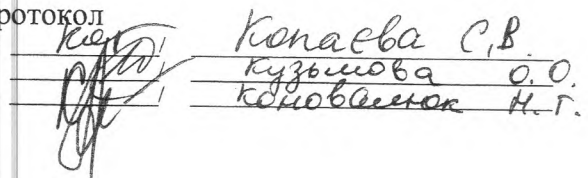 ротокол
Копаева С.В.
Кузьмова О.О.
Коновалюк Н.Г.